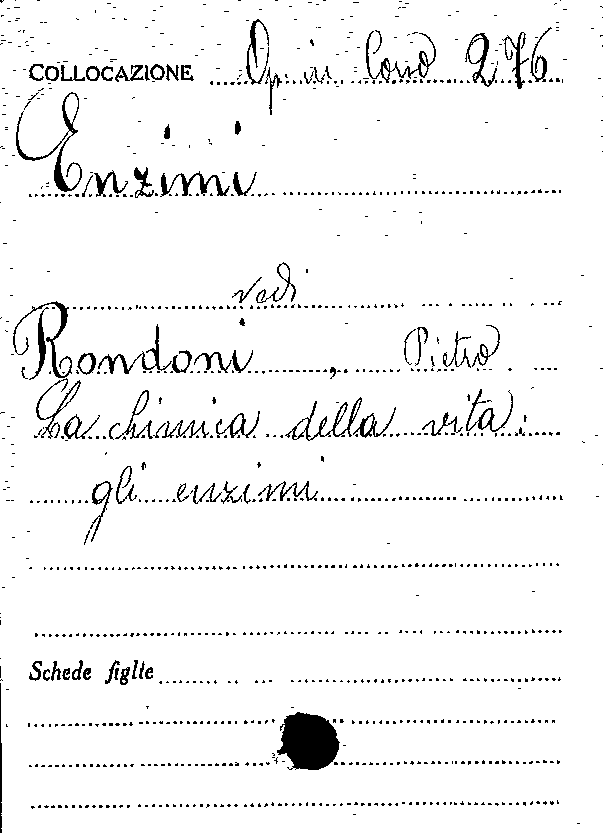 COLLOCAZIONE Op. in Cons 276
Enzimi
vedi
Rondoni, Pietro
La chimica della vita:
gli enzimi
Schede figlie